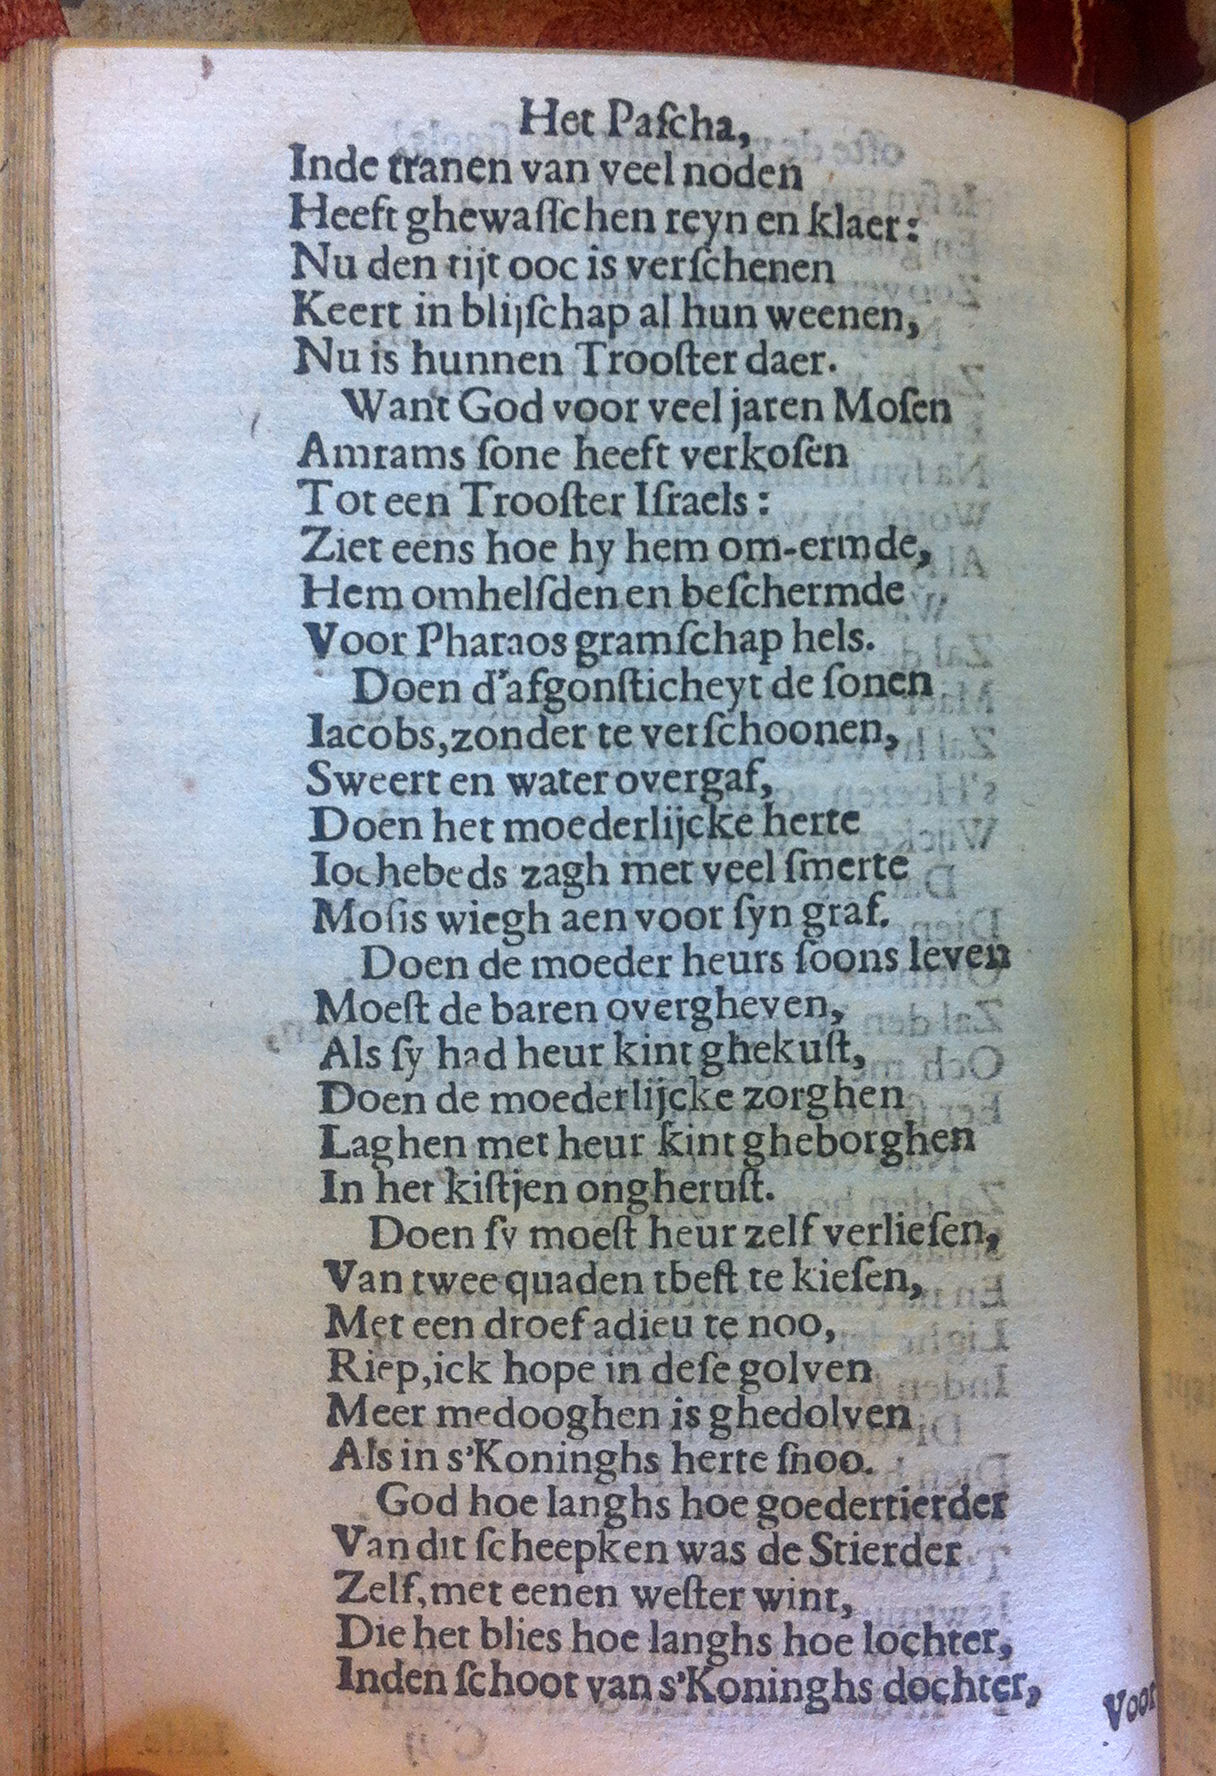 Het Paſcha,
Inde tranen van veel noden
Heeft ghewaſſchen reyn en klaer:
Nu den tijt ooc is verſchenen
Keert in blijſchap al hun weenen,
Nu is hunnen Trooſter daer.
Want God voor veel jaren Moſen
Amrams ſone heeft verkoſen
Tot een Trooſter Iſraels:
Ziet eens hoe hy hem om-ermde,
Hem omhelſden en beſchermde
Voor Pharaos gramſchap hels.
Doen d'afgonſticheyt de ſonen
Iacobs, zonder te verſchoonen,
Sweert en water overgaf,
Doen het moederlijcke herte
Iochebeds zagh met veel ſmerte
Moſis wiegh aen voor ſyn graf.
Doen de moeder heurs ſoons leven
Moeſt de baren overgheven,
Als ſy had heur kint ghekuſt,
Doen de moederlijcke zorghen
Laghen met heur kint gheborghen
In het kiſtjen ongheruſt.
Doen ſy moeſt heur zelf verlieſen,
Van twee quaden tbeſt te kieſen,
Met een droef adieu te noo,
Riep, ick hope in deſe golven
Meer medooghen is ghedolven
Als in s'Koninghs herte ſnoo.
God hoe langhs hoe goedertierder
Van dit ſcheepken was de Stierder
Zelf, met eenen weſter wint,
Die het blies hoe langhs hoe lochter,
Inden ſchoot van s'Koninghs dochter,
Voor